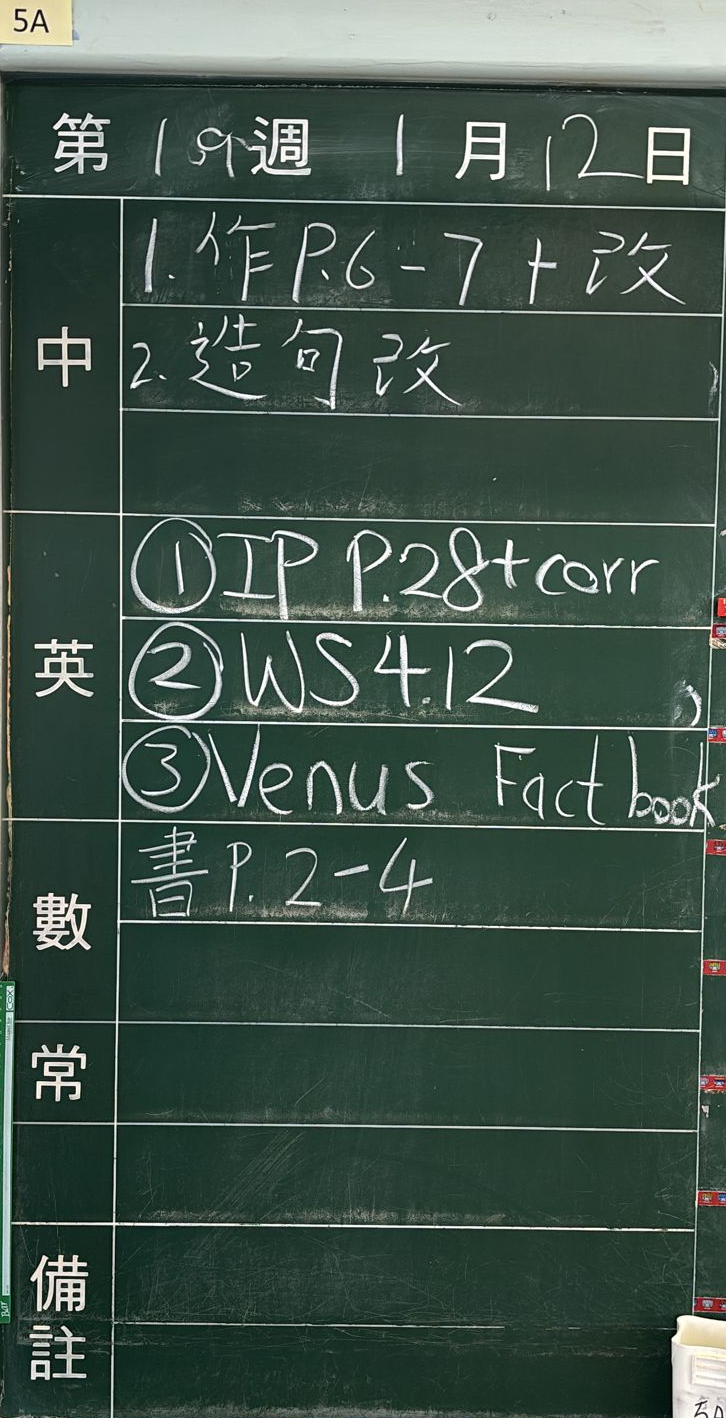 5A
第19週 1月12日
中
1. 作 P.6-7+改
2. 造句改
英
①IP P.28+corr
②WS4.12
③Venus Fact book
數
書P.2-4
常
備註